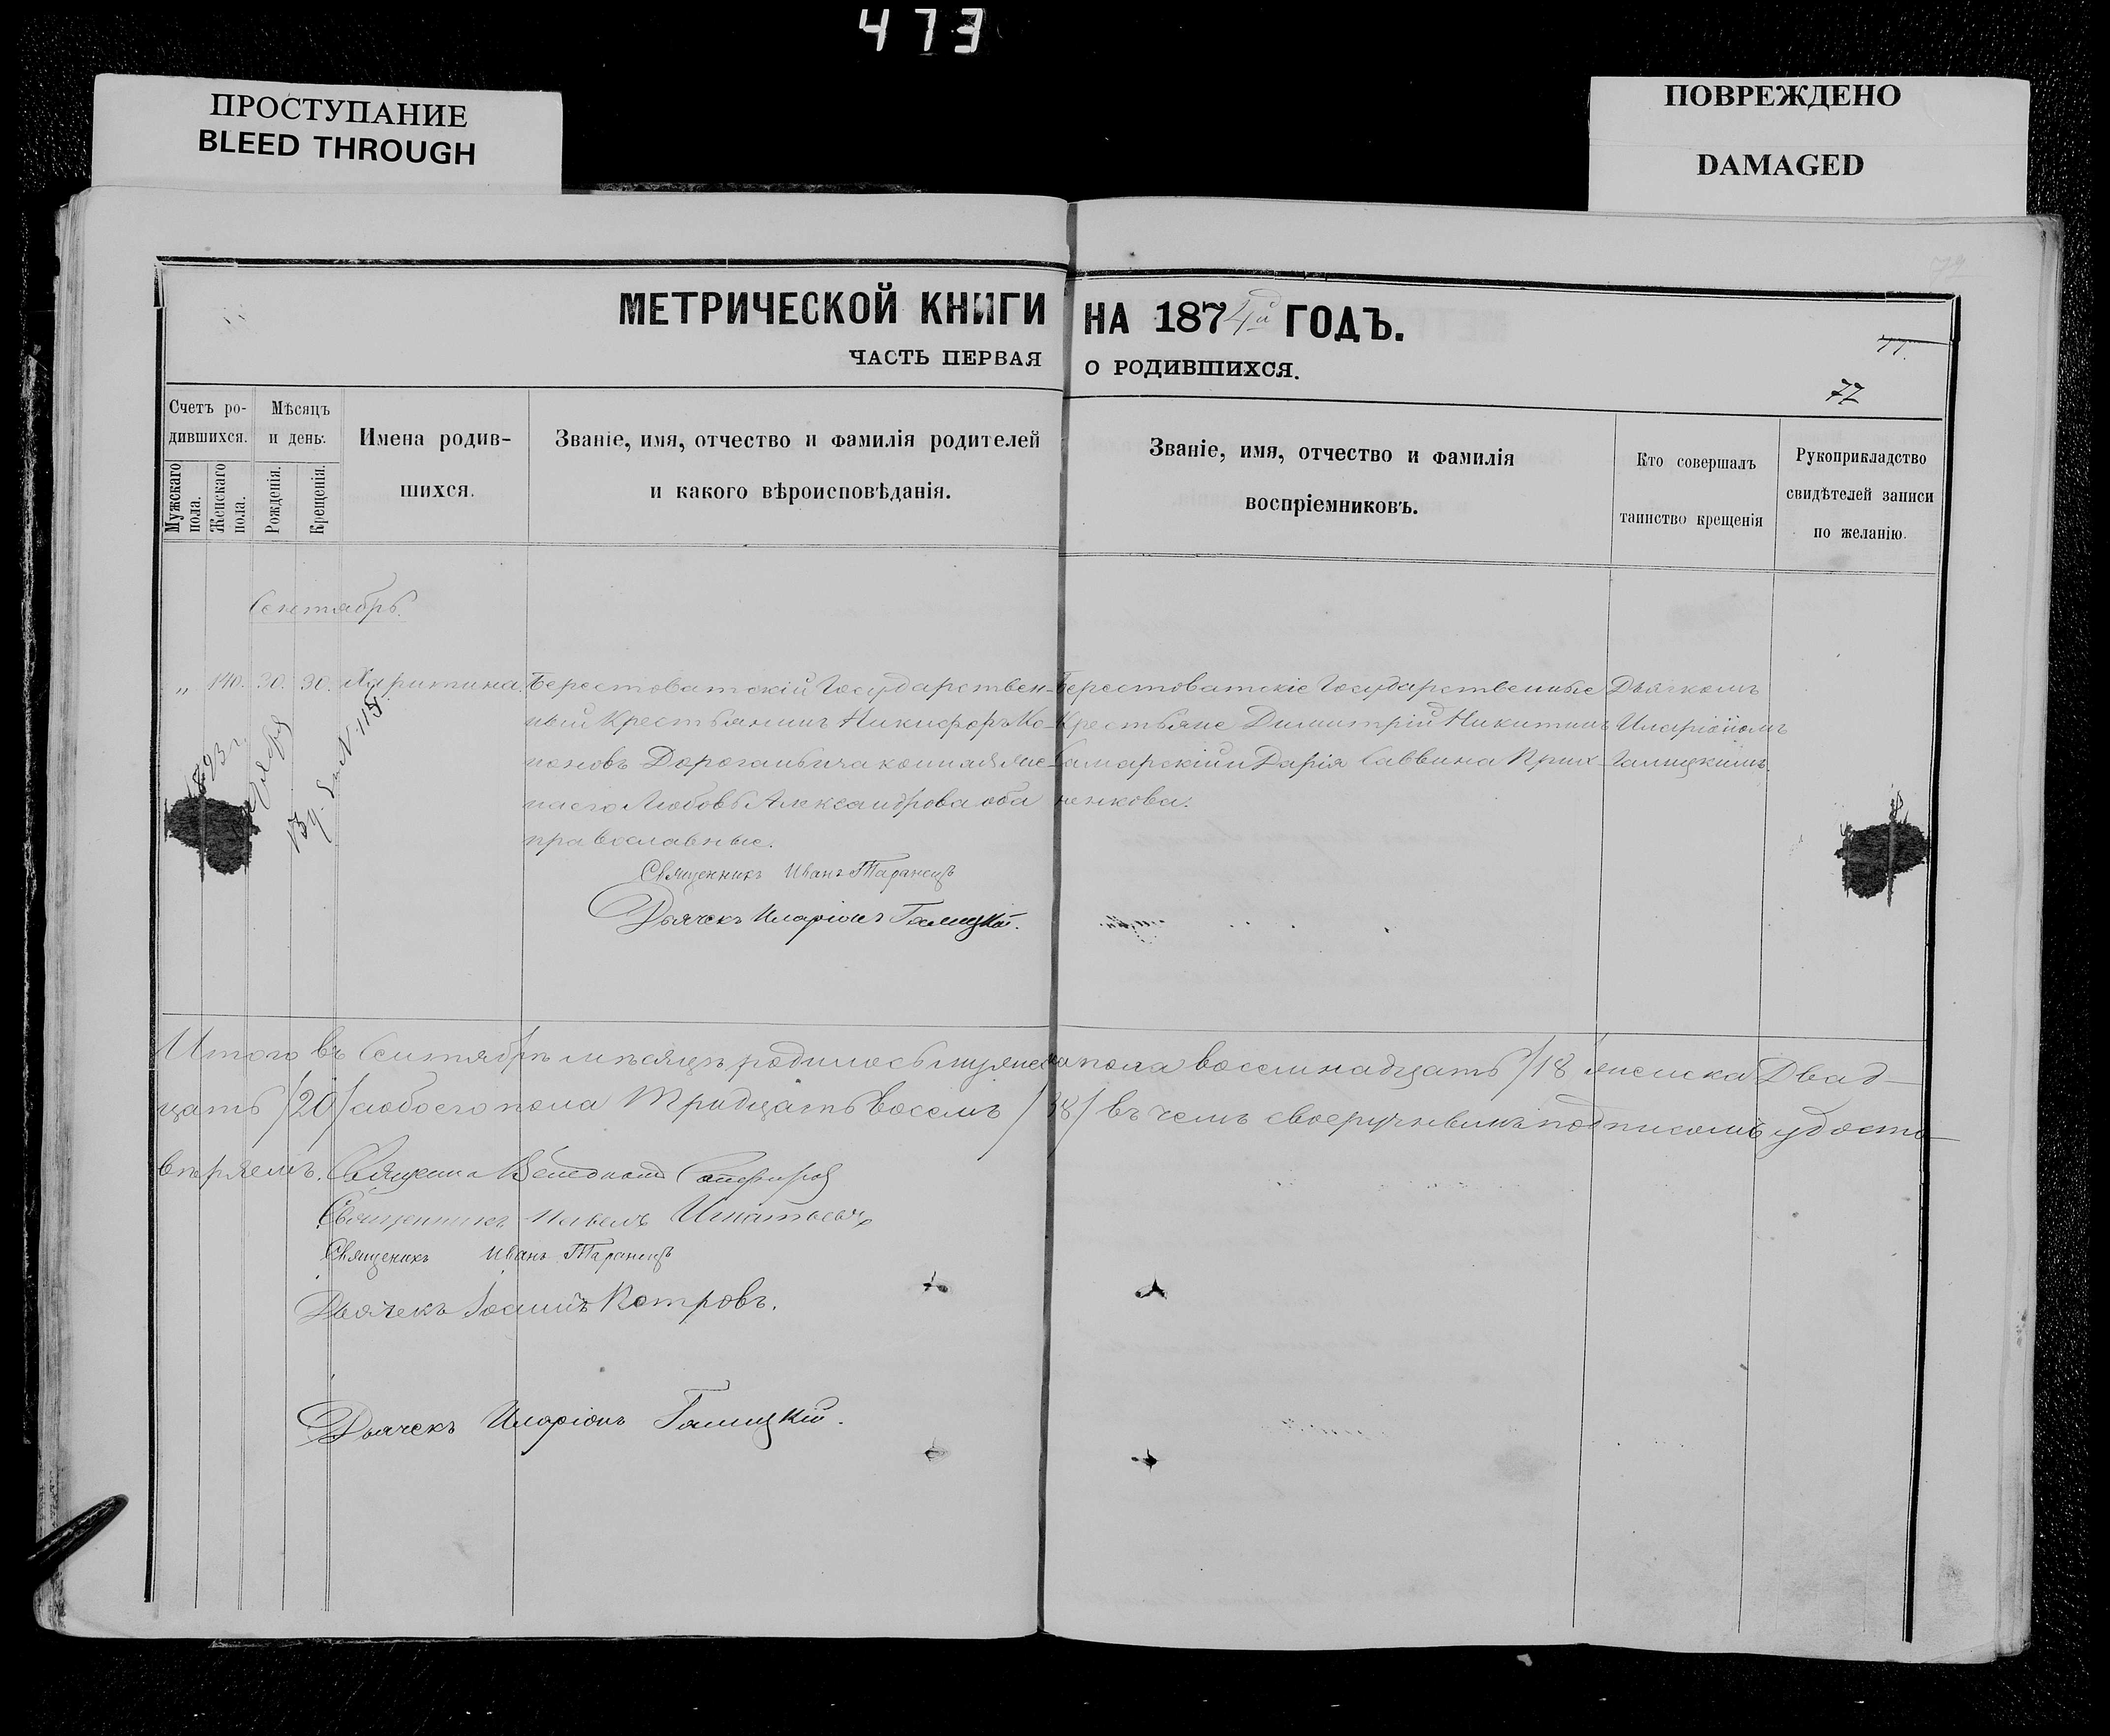 473
ПРОСТУПАНИЕ
BLEED THROUGH
ПОВРЕЖДЕНО
DAMAGED
МЕТРИЧЕСКОЙ КНИГИ НА 1874й ГОДЪ.
ЧАСТЬ ПЕРВАЯ О РОДИВШИХСЯ.
77
Счетъ ро-
дившихся.
Мужскаго пола.
Женскаго пола.
Мѣсяцъ
и день.
Рожденія.
Крещенія.
Имена родив-
шихся.
Званіе, имя, отчество и фамилія родителей
и какого вѣроисповѣданія.
Званіе, имя, отчество и фамилія
воспріемниковъ.
Кто совершалъ
таинство крещенія
Рукоприкладство
свидѣтелей записи
по желанію.
Сентябрь.
„ 140. 30. 30. Харитина
Берестоватскій Государствен-
ный Крестьянинъ Никифоръ Ко-
поновъ и законная же-
на его Любовь Александрова оба
православные.
Священникъ Иванъ Таранецъ
Дьячекъ Иларіонъ Галицкій.
Берестоватскіе Государственные
Крестьяне Димитрій Никитинъ
Самарскій и Дарія Саввина Прих-
ненкова.
Дьячкомъ
Иларіономъ
Галицкимъ.
Итого въ Сентябрѣ мѣсяцѣ родилось мужеска пола восемнадцать /18 женска Двад-
цать /20/ а обоего пола Тридцать восемь /38/ въ чемъ своеручнымъ подписомъ удосто-
вѣряемъ. Священникъ
Священникъ Павелъ Игнатьевъ
Священикъ Иванъ Таранецъ
Дьячекъ Іосифъ Петровъ.
Дьячекъ Иларіонъ Галицкій.